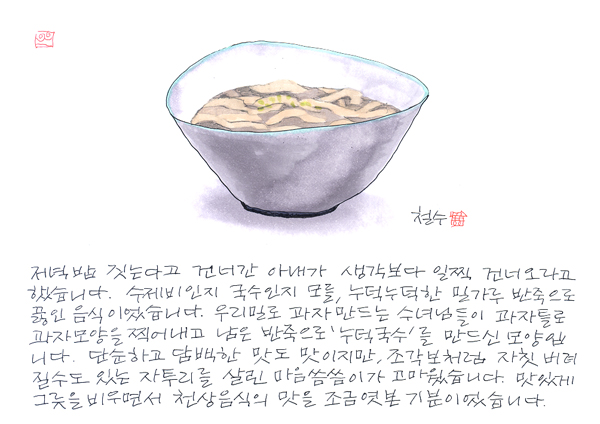 철수
저녁밥 짓는다고 건너간 아내가 생각보다 일찍 건너오라고
했습니다. 수제비인지 국수인지 모를, 누덕누덕한 밀가루 반죽으로
끓인 음식이었습니다. 우리밀로 과자 만드는 수녀님들이 과자틀로
과자모양을 찍어내고 남은 반죽으로 '누덕국수'를 만드신 모양입
니다. 단순하고 담백한 맛도 맛이지만, 조각보처럼 자칫 버려
질수도 있는 자투리를 살린 마음씀씀이가 고마웠습니다. 맛있게
그릇을 비우면서 천상음식의 맛을 조금 엿본 기분이었습니다.